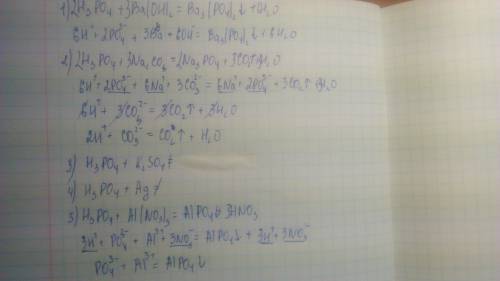 1) 2H₃PO₄ + 3Ba(OH)₂ = Ba₃(PO₄)₂↓ + 6H₂O
6H⁺ + 2PO₄³⁻ + 3Ba²⁺ + 6OH⁻ = Ba₃(PO₄)₂↓ + 6H₂O
2) 2H₃PO₄ + 3Na₂CO₃ = 2Na₃PO₄ + 3CO₂↑ + 3H₂O
6H⁺ + 2PO₄³⁻ + 6Na⁺ + 3CO₃²⁻ = 6Na⁺ + 2PO₄³⁻ + 3CO₂↑ + 3H₂O
6H⁺ + 3CO₃²⁻ = 3CO₂↑ + 3H₂O
2H⁺ + CO₃²⁻ = CO₂↑ + H₂O
3) H₃PO₄ + K₂SO₄ ≠
4) H₃PO₄ + Ag ≠
5) H₃PO₄ + Al(NO₃)₃ = AlPO₄↓ + 3HNO₃
3H⁺ + PO₄³⁻ + Al³⁺ + 3NO₃⁻ = AlPO₄↓ + 3H⁺ + 3NO₃⁻
PO₄³⁻ + Al³⁺ = AlPO₄↓